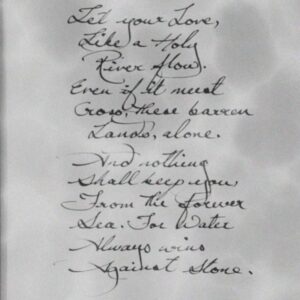 Let your Love,
Like a Holy
River flow.
Even if it must
Cross, these barren
Lands, alone.
And nothing
Shall keep you,
From the forever
Sea. For Water
Always wins
Against Stone.